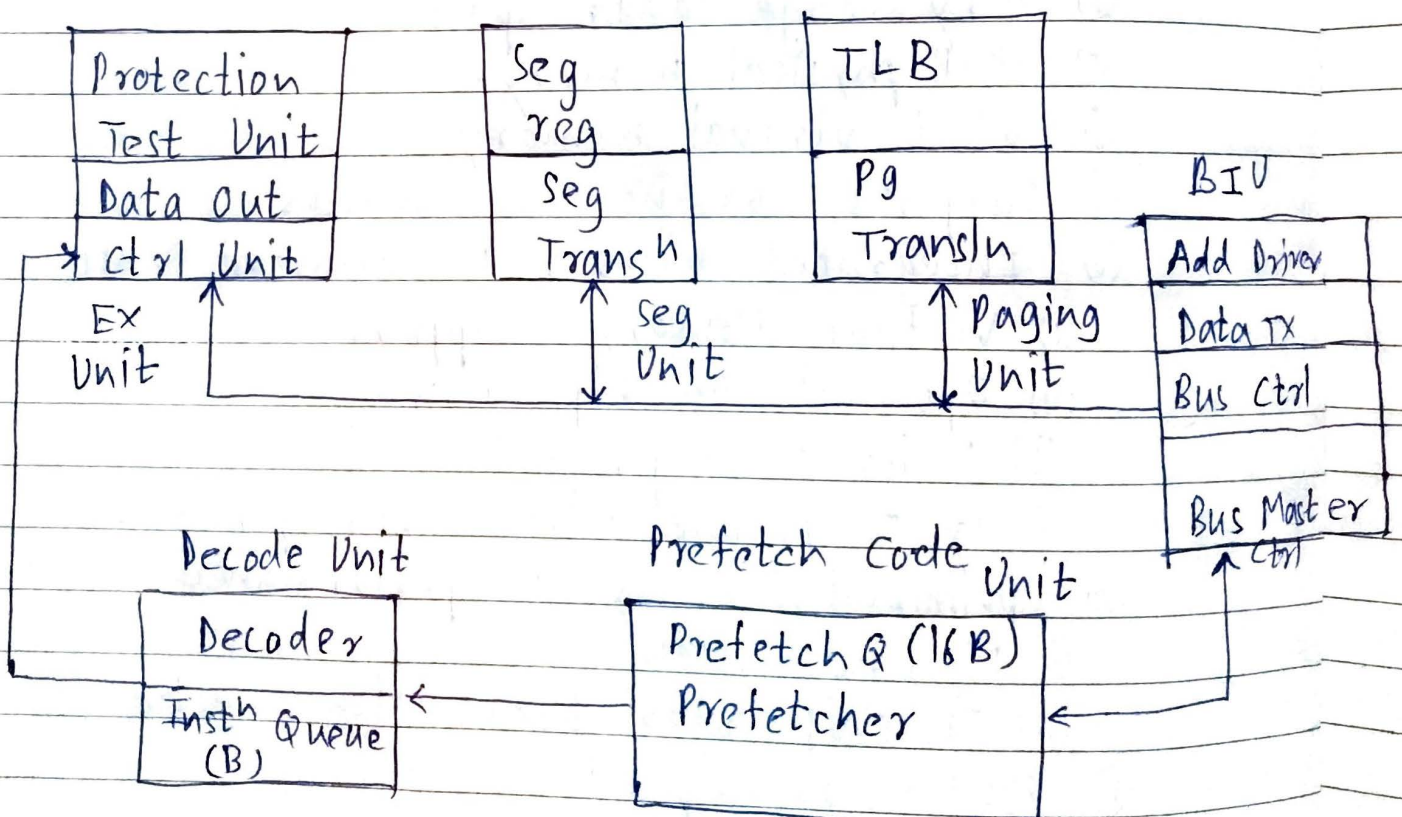 Protection
Test Unit
Data out
Ctrl Unit
Ex
Unit
Seg
reg
Seg
Transn
Seg
Unit
TLB
Pg
Transln
Paging
Unit
BIU
Add Driver
Data TX
Bus Ctrl
Bus Master
Ctrl
Decode Unit
Decoder
Instn Queue
(B)
Prefetch Code Unit
Prefetch Q (16B)
Prefetcher